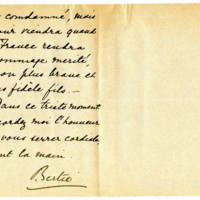 condamné, mais
jour viendra quand
France rendra
hommage mérité,
son plus brave et
plus fidèle fils. —
Dans ce triste moment
accordez moi l'honneur
vous serrer cordiale
ment la main.
Bertie